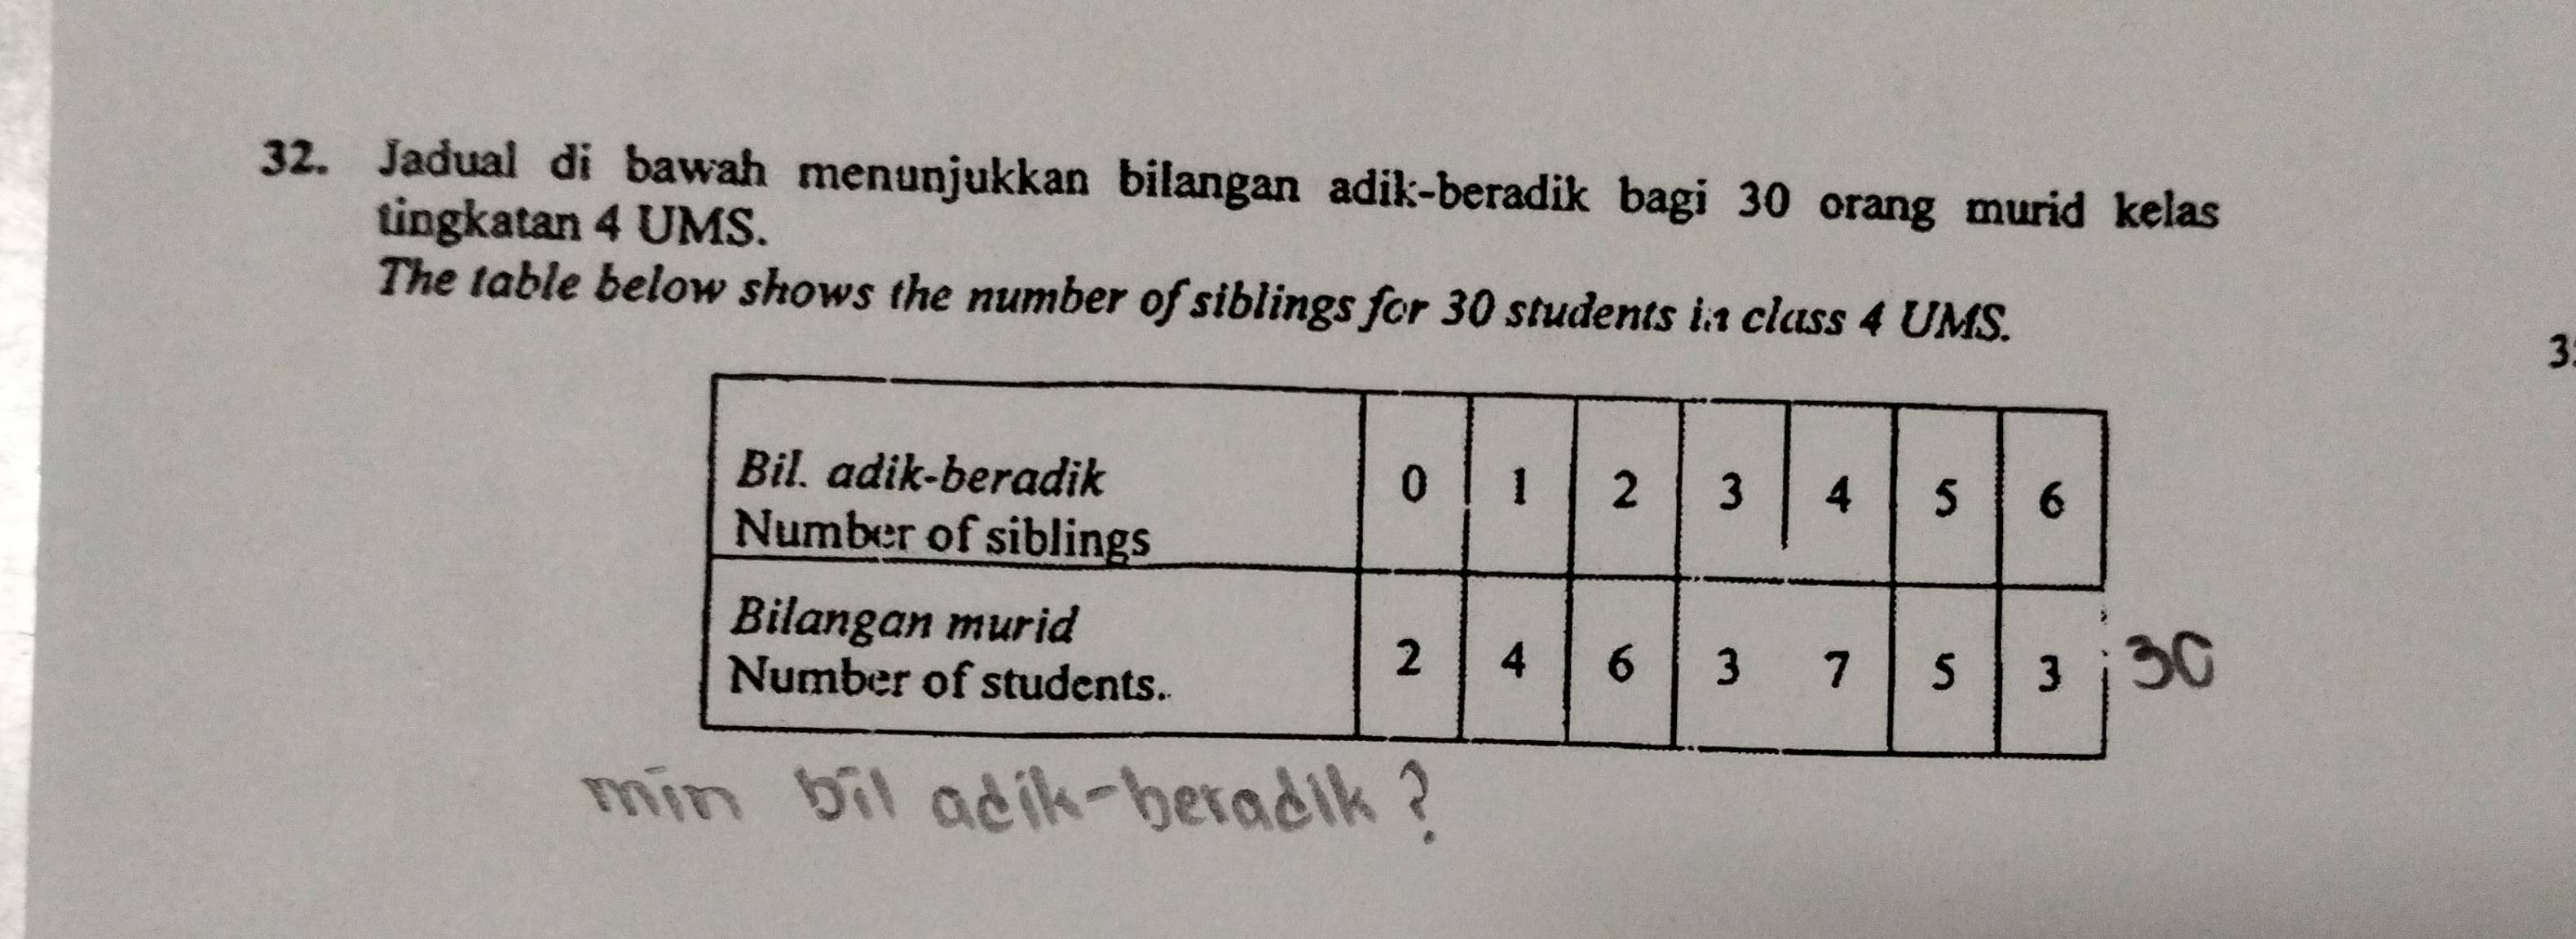 32. Jadual di bawah menunjukkan bilangan adik-beradik bagi 30 orang murid kelas
tingkatan 4 UMS.
The table below shows the number of siblings for 30 students in class 4 UMS.
Bil. adik-beradik
Number of siblings
0 1 2 3 4 5 6
Bilangan murid
Number of students.
2 4 6 3 7 5 3
30
min bil adik-beradik?